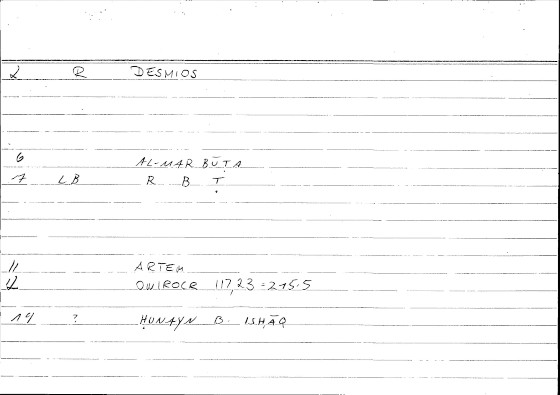 2 R DESMIOS
6 AL-MARBŪṬA
7 LB R B Ṭ
11 ARTEM
12 ONIROCR 117,23 = 215.5
14 ? ḤUNAYN B. ISḤĀQ